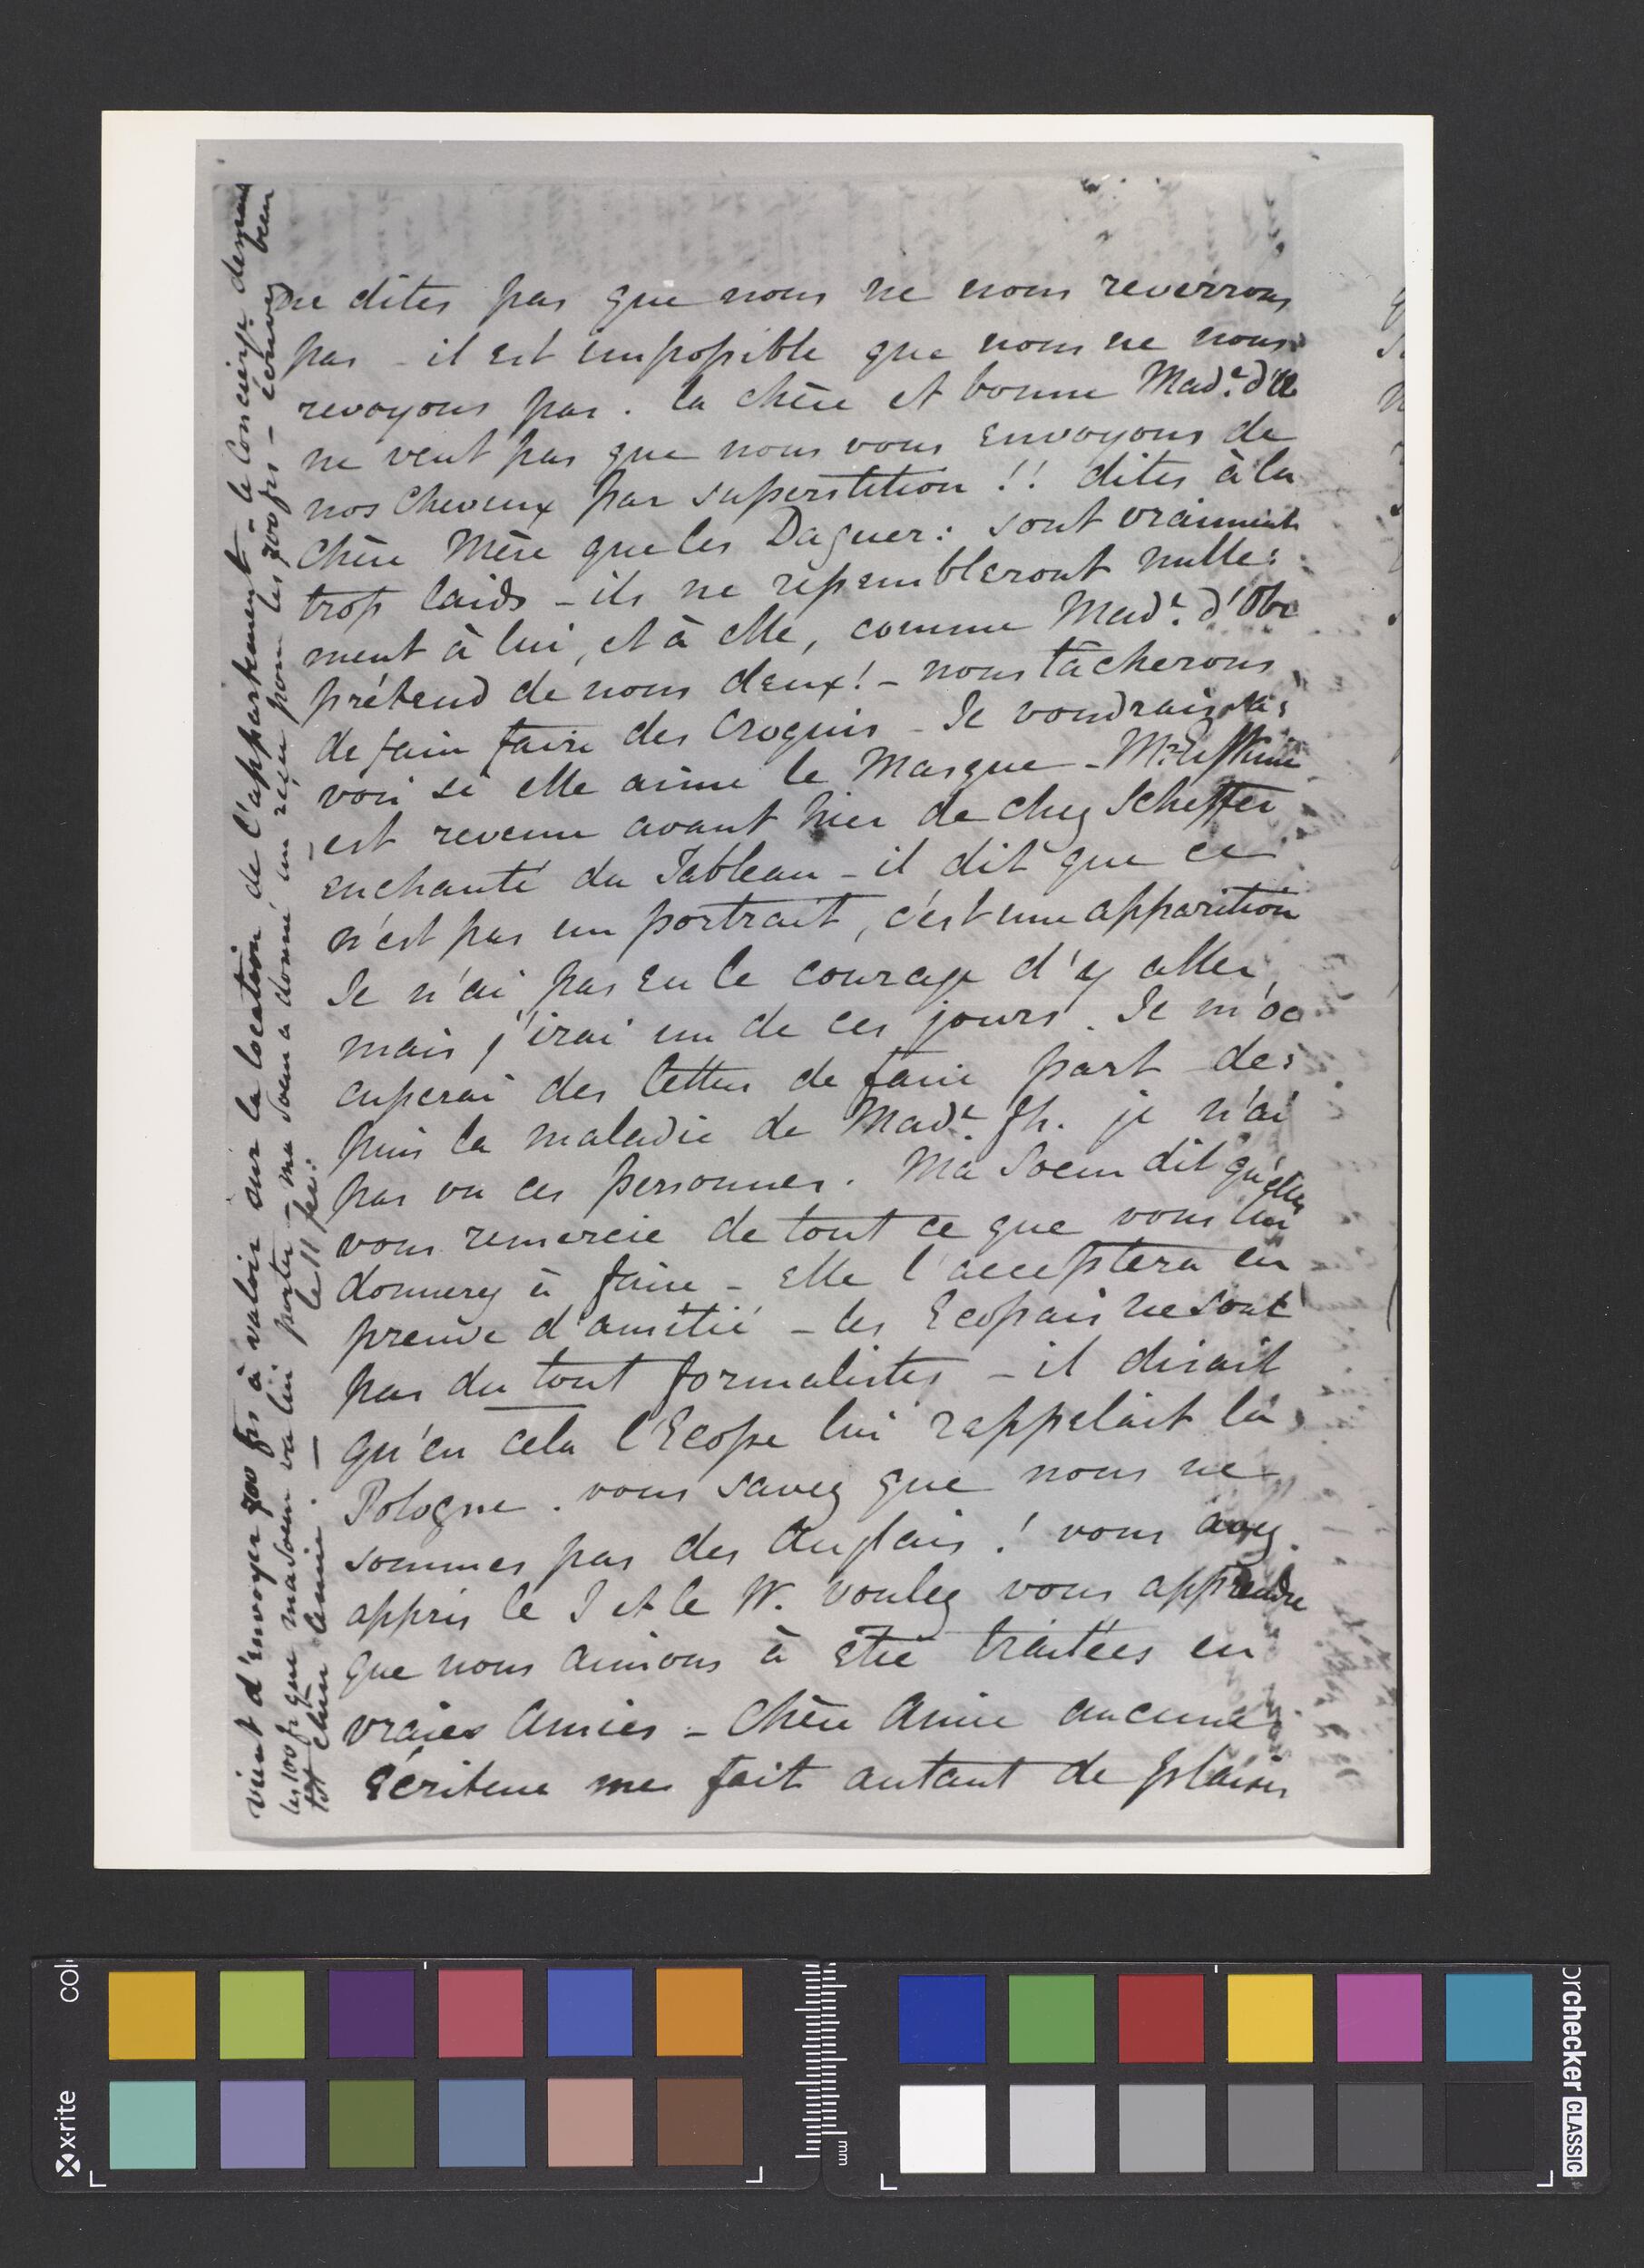 ne dites pas que nous ne nous reverrons
pas – il est impossible que nous ne nous
revoyons pas. la chère et bonne Made. d'O
ne veut pas que nous vous envoyons de
nos cheveux par superstition !! dites à la
chère Mère que les Daguer: sont vraiment
trop laids – ils ne ressembleront nulle:
ment à lui, et à elle, comme Made. d'Obr
prétend de nous deux! – nous tâcherons
de faire des Croquis – Je voudrais sa:
voir si elle aime le Masque – Mr. Erskine
est revenu avant hier de chez Scheffer
enchanté du Tableau – il dit que ce
n'est pas un portrait, c'est une apparition
Je n'ai pas eu le courage d'y aller
mais j'irai un de ces jours. Je m'oc
cuperai des lettres de faire part de:
puis la maladie de Made. Jh. je n'ai
pas vu ces personnes. Ma Soeur dit qu'elle
vous remercie de tout ce que vous lui
donnerez à faire – elle l'acceptera en
preuve d'amitié – les Ecossais ne sont
pas du tout formalistes – il disait
qu'en cela l'Ecosse lui rappelait la
Pologne. vous savez que nous ne
sommes pas des Anglais ! vous avez
appris le J et le W. voulez vous apprendre
que nous aimons à être traitées en
vraies Amies – Chère Amie aucune
écriture me fait autant de plaisir
vient d'envoyer 700 frs à valoir sur la location de l'appartement – le Concierge demande
les 100 fr que ma soeur va lui porter – ma Soeur a donné un reçu pour les 700 frs – écrivez bien
tôt chère Amie. — le 11 fev:
x-rite
colo
mm
orchecker CLASSIC